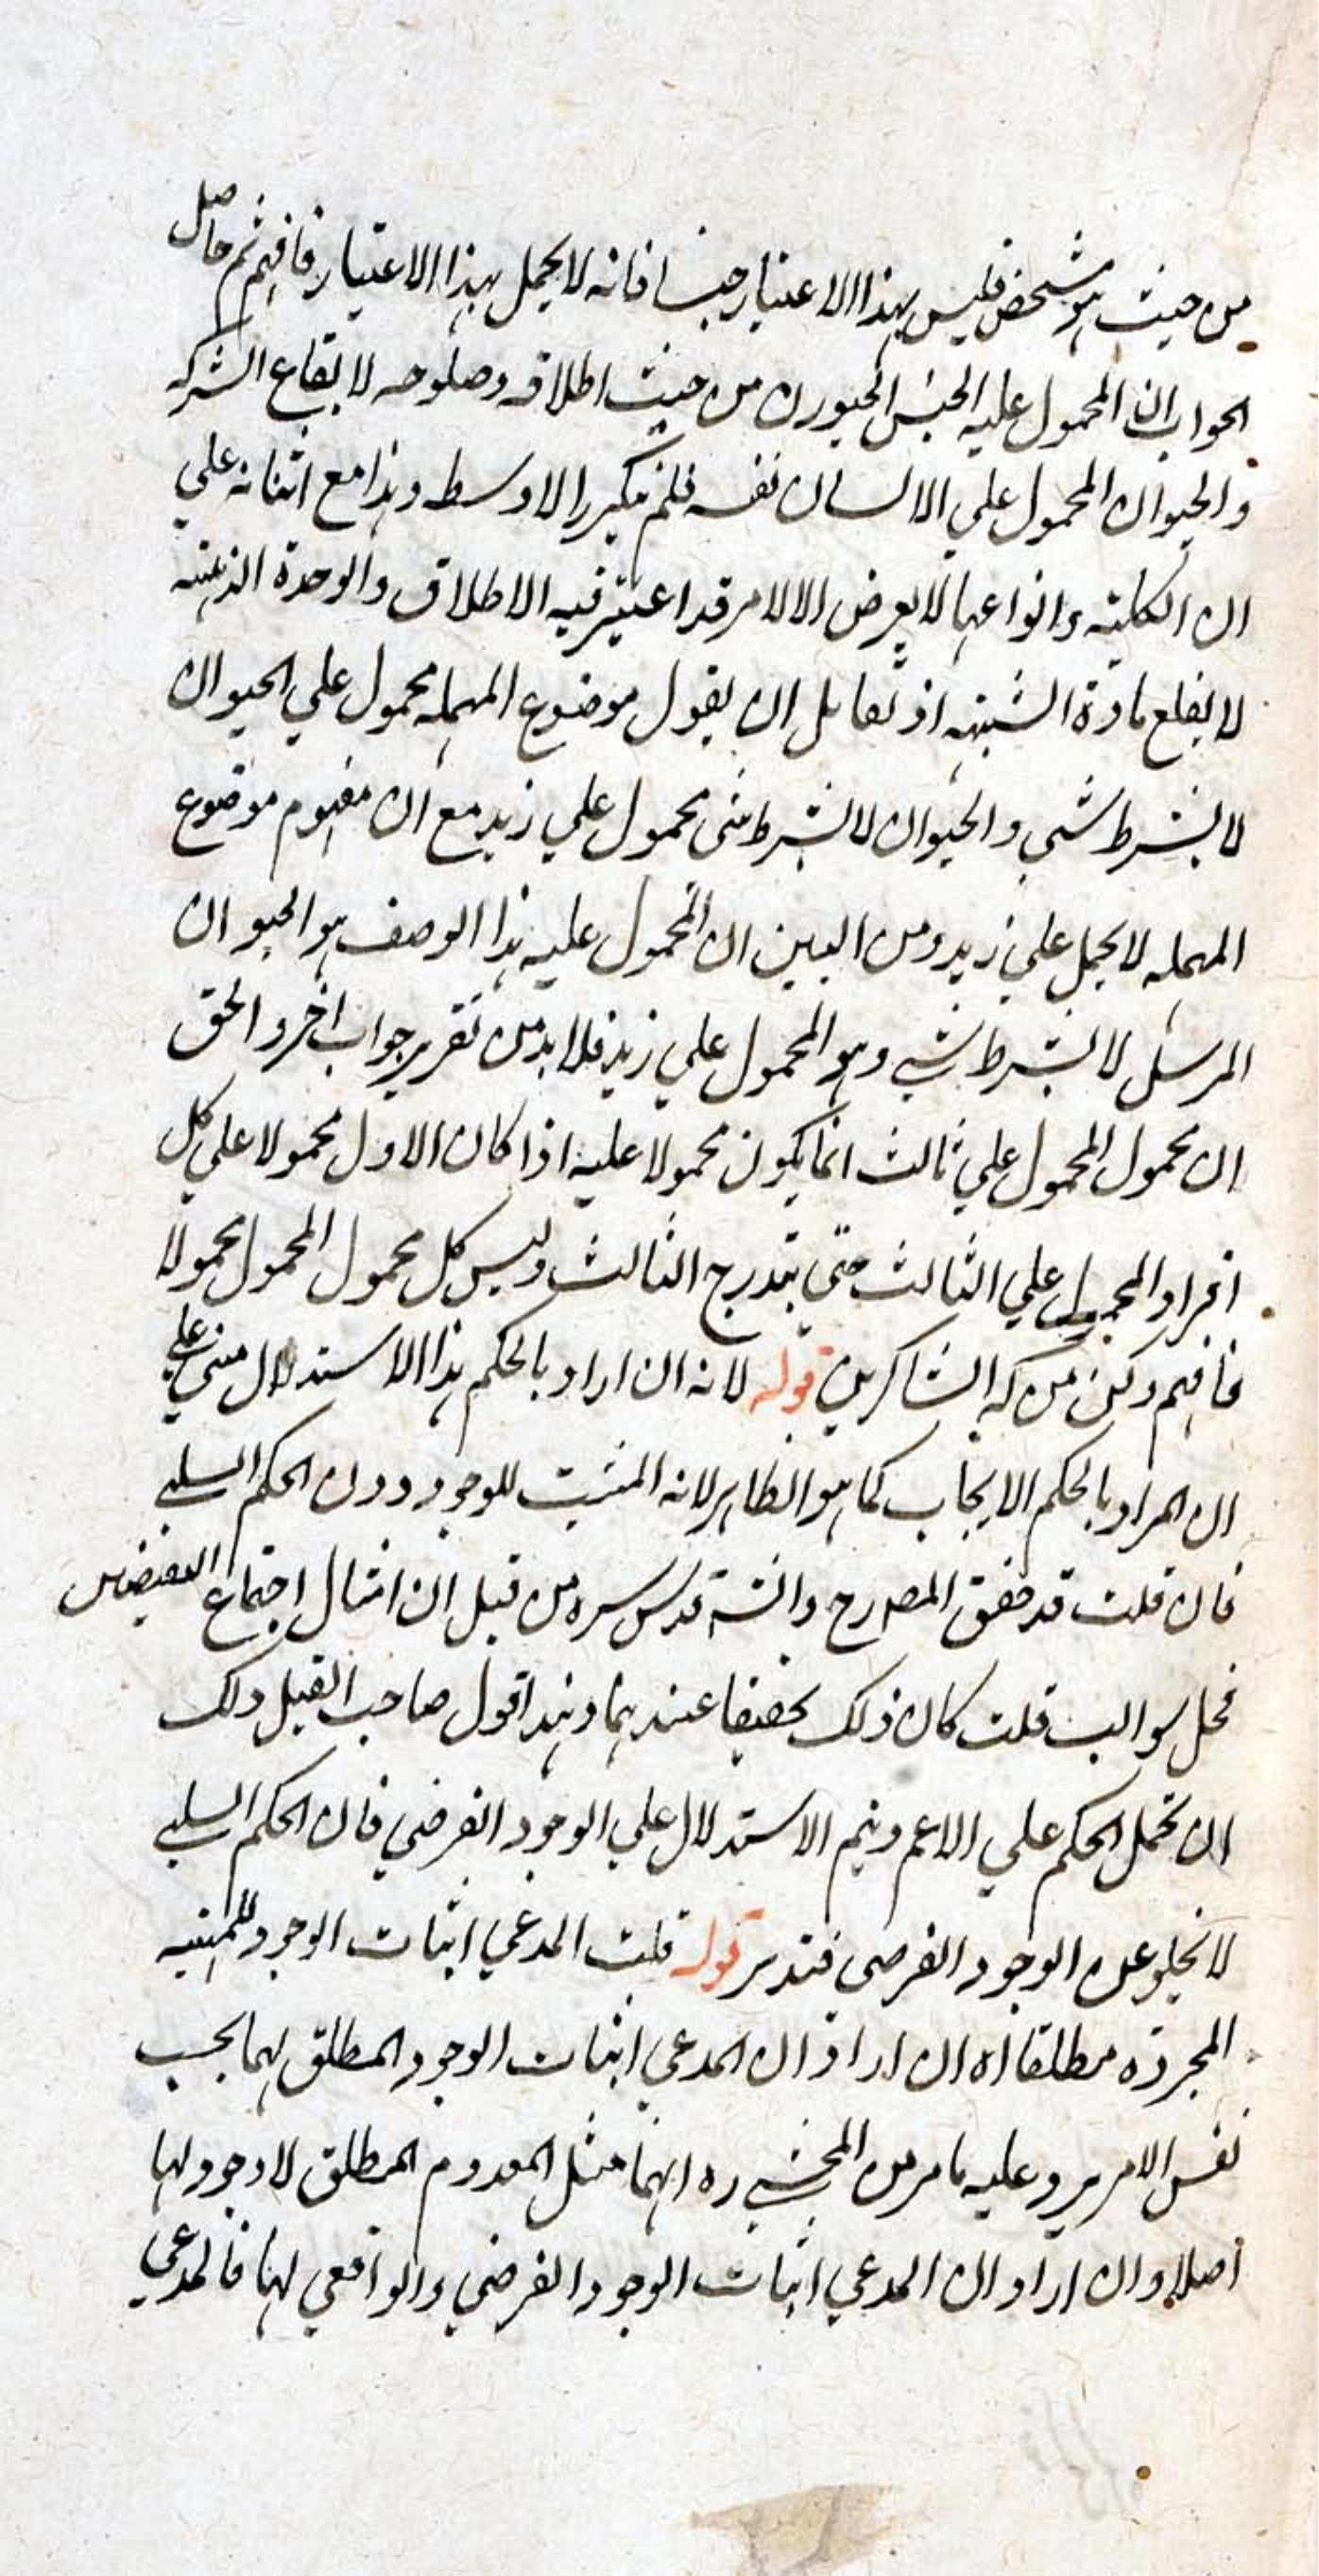 من حيث هو شخص فليس بهذا الاعتبار جنسا فانه لا يحمل بهذا الاعتبار فافهم ثم حاصل
الجواب ان المحمول عليه الجنس الحيوان من حيث اطلاقه وصلوحه لايقاع الشركه
والحيوان المحمول علي الانسان نفسه فلم يتكرر الاوسط وهذا مع ابتنائه علي
ان الكليته وانواعها لا يعرض الا لامر قد اعتبر فيه الاطلاق والوحدة الذهنيه
لا يقلع مادة الشبهه اذ لقائل ان يقول موضوع المهمله محمول علي الحيوان
لا بشرط شي والحيوان لا بشرط شي محمول علي زيد مع ان مفهوم موضوع
المهمله لا يحمل علي زيد ومن البين ان المحمول عليه هذا الوصف هو الحيوان
المرسل لا بشرط شي وهو المحمول علي زيد فلا بد من تقرير جواب اخر والحق
ان محمول المحمول علي ثالث انما يكون محمولا عليه اذا كان الاول محمولا علي كل
افراد المحمول علي الثالث حتي يندرج الثالث وليس كل محمول المحمول محمولا
فافهم وكن من الشاكرين قوله لانه ان اراد بالحكم هذا الاستدلال مبني علي
ان المراد بالحكم الايجاب كما هو الظاهر لانه المثبت للوجود دون الحكم السلبي
فان قلت قد حقق المصرح قدس سره من قبل ان امثال اجتماع النقيضين
محل سوالب قلت كان ذلك تحقيقا عندهما وهذا قول صاحب القيل ولك
ان تحمل الحكم علي الاعم ويتم الاستدلال علي الوجود الفرضي فان الحكم السلبي
لا يخلو عن الوجود الفرضي فتدبر قوله قلت المدعي اثبات الوجود للمهيه
المجرده مطلقا اه ان اراد ان المدعي اثبات الوجود المطلق لهما بحسب
نفس الامر يرد عليه ما مر من المحشي ره انهما مثل المعدوم المطلق لا وجود لها
اصلا وان اراد ان المدعي اثبات الوجود الفرضي والواقعي لهما فالمدعي